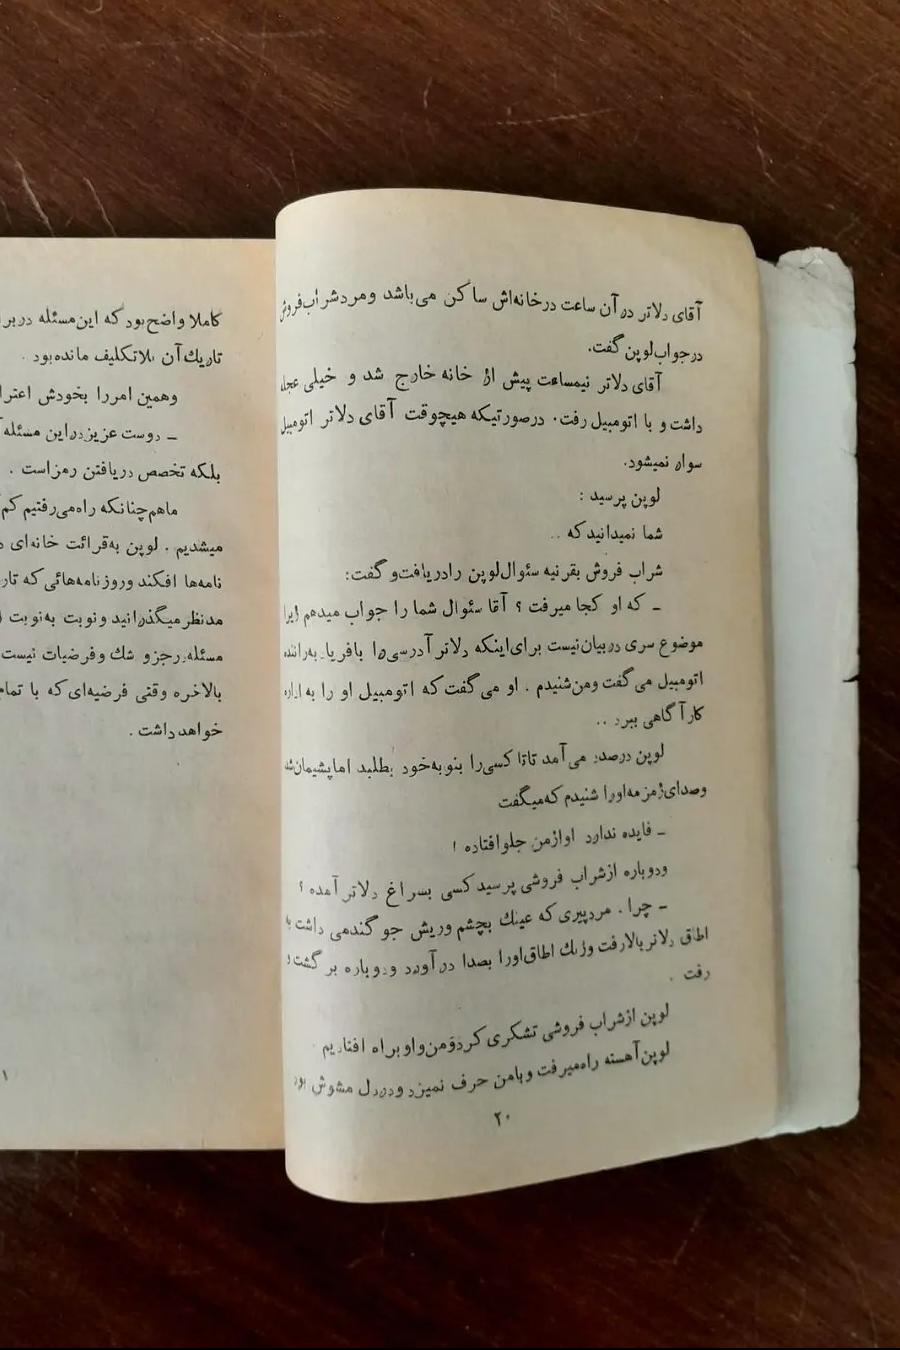 آقای دلاتر در آن ساعت درخانه‌اش ساکن می‌باشد ومردشراب‌فروش
درجواب‌لوپن‌گفت.
آقای دلاتر نیمساعت پیش از خانه خارج شد و خیلی عجله
داشت و با اتومبیل رفت. درصورتیکه هیچوقت آقای دلاتر اتومبیل
سوار نمیشود.
لوپن پرسید :
شما نمیدانیدکه ..
شراب فروش بقرنیه سئوال‌لوپن رادریافت‌و گفت:
ـ که او کجا میرفت ؟ آقا سئوال شما را جواب میدهم زیرا
موضوع سری دربیان‌نیست برای‌اینکه دلاتر آدرسی‌را بافریاد به‌راننده
اتومبیل می‌گفت ومن‌شنیدم . او می‌گفت‌که اتومبیل او را به اداره
کارآگاهی ببرد ..
لوپن درصدد می‌آمد تاتا کسی‌را بنوبه‌خود بطلبد اماپشیمان‌شد
وصدای‌زمزمه‌اورا شنیدم که‌میگفت
ـ فایده ندارد اوازمن جلوافتاده !
ودوباره ازشراب فروشی پرسیدکسی بسراغ دلاتر آمده ؟
ـ چرا . مردپیری‌که عینك بچشم وریش جو گندمی داشت به
اطاق دلاتربالارفت وزنك اطاق‌اورا بصدا درآورد ودوباره بر گشت و
رفت .
لوپن ازشراب فروشی تشکری کردومن‌واوبراه افتادیم
لوپن‌آهسته راه‌میرفت وبامن حرف نمیزد ودردل مشوش بود
۲۰
کاملا واضح‌بودکه این‌مسئله
تاریك‌آن بلاتکلیف مانده‌بود .
وهمین امررا بخودش
ـ دوست عزیزدراین مسئله
بلکه تخصص دریافتن رمزاست .
ماهم‌چنانکه راه‌می‌رفتیم
میشدیم . لوپن به‌قرائت خانه‌ای
نامه‌ها افکند وروزنامه‌هائی‌که
مدنظرمیگذرانید ونوبت به‌نوبت
مسئله رجزو شك وفرضیات نیست
بالاخره وقتی فرضیه‌ای‌که با تمام
خواهدداشت .